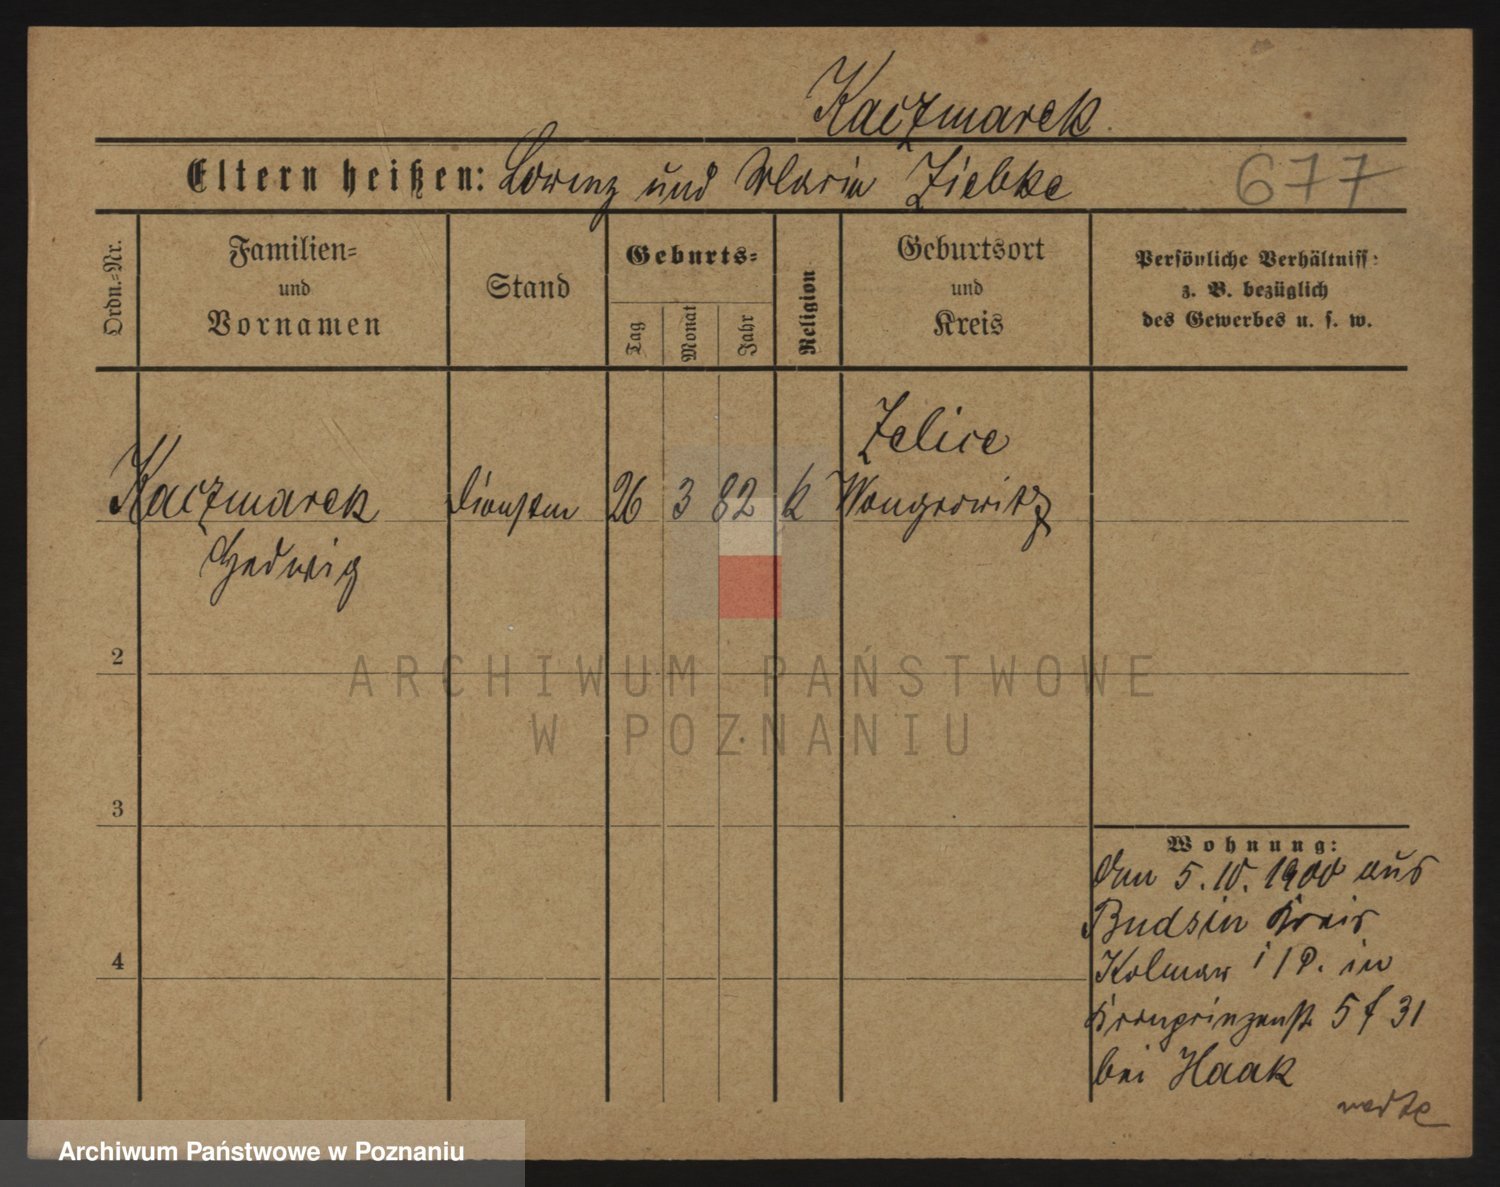 Kaczmarek
Eltern heißen: Lorenz und Maria Ziebke 677
Ordn.-Nr.
Familien-
und
Vornamen
Stand
Geburts-
Tag
Monat
Jahr
Religion
Geburtsort
und
Kreis
Persönliche Verhältniss-
z. B. bezüglich
des Gewerbes u. s. w.
Zelice
Kaczmarek 26 3 82 k Wongrowitz
Hedwig
2
3
4
Wohnung:
Den 5. 10. 1900 aus
Budsin Kreis
Kolmar i/P. in
Kronprinzenst 5 f 31
bei Haak
ARCHIWUM PAŃSTWOWE
W POZNANIU
Archiwum Państwowe w Poznaniu